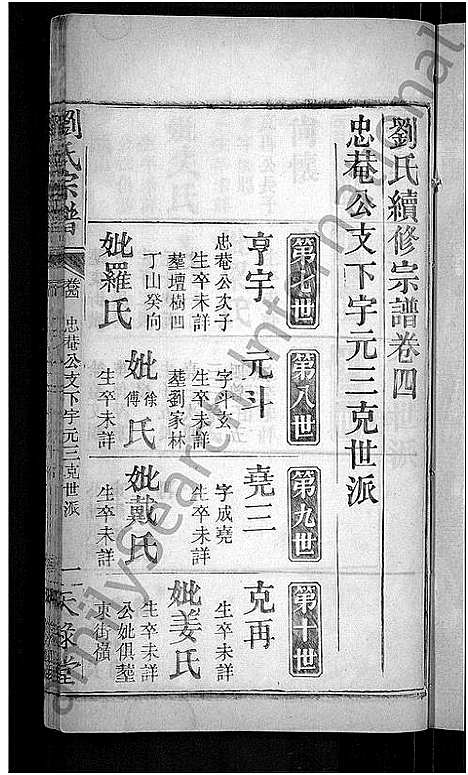 劉氏續修宗譜卷四
忠菴公支下字元三克世派
第七世
亨宇
忠菴公次子
生卒未詳
塟壇樹凹
丁山癸向
妣羅氏
第八世
元斗
字斗玄
生卒未詳
塟劉家林
妣徐傅氏
生卒未詳
第九世
堯三
字成堯
生卒未詳
妣戴氏
生卒未詳
第十世
克再
生卒未詳
妣姜氏
生卒未詳
公妣俱塟
東街嶺
劉氏宗譜
忠菴公支下字元三克世派
一天祿堂
FamilySearch International